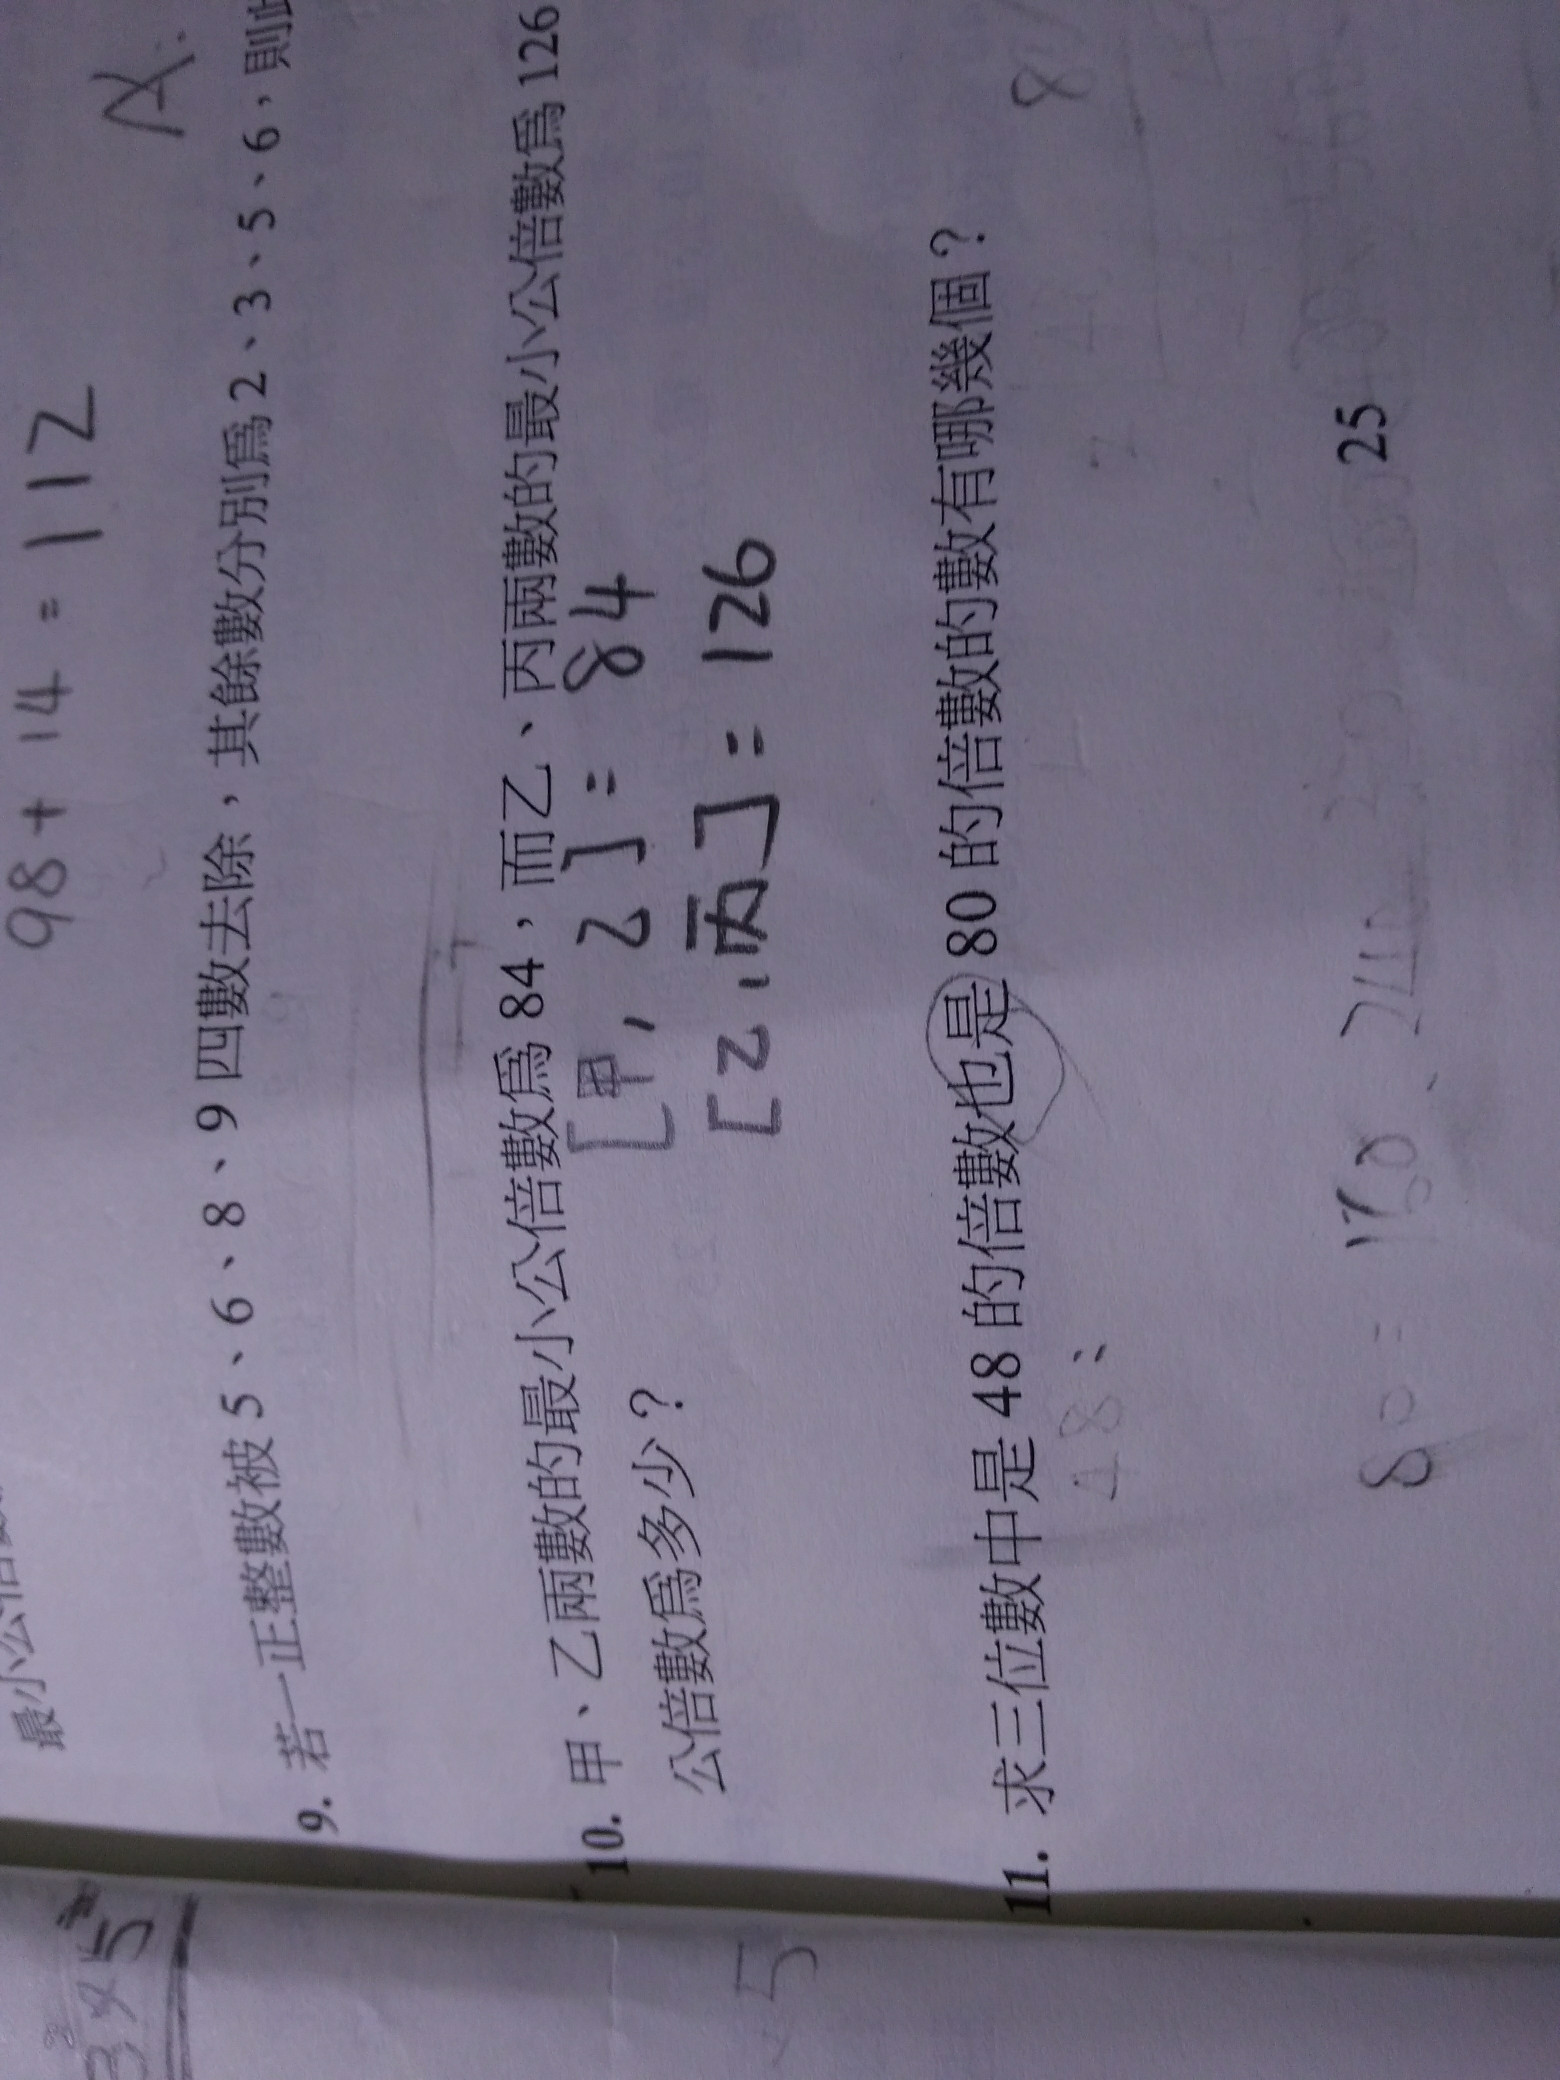 98 + 14 = 112
9. 若一正整數被 5、6、8、9 四數去除，其餘數分別爲 2、3、5、6，則此
10. 甲、乙兩數的最小公倍數爲 84，而乙、丙兩數的最小公倍數爲 126
[甲, 乙] = 84
公倍數爲多少？
[乙, 丙] = 126
11. 求三位數中是 48 的倍數也是 80 的倍數的數有哪幾個？
48 =
80 = 160、240
25
5